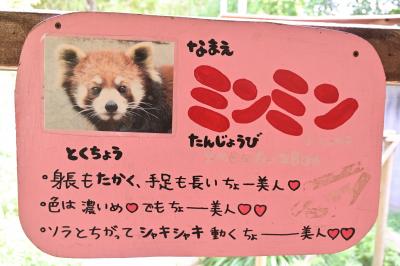 なまえ
ミンミン
たんじょうび
とくちょう
• 身長もたかく、手足も長い ちょー美人♡
• 色は 濃いめ♡ でも ちょ――美人♡♡
• ソラとちがって シャキシャキ 動く ちょ―――美人♡♡